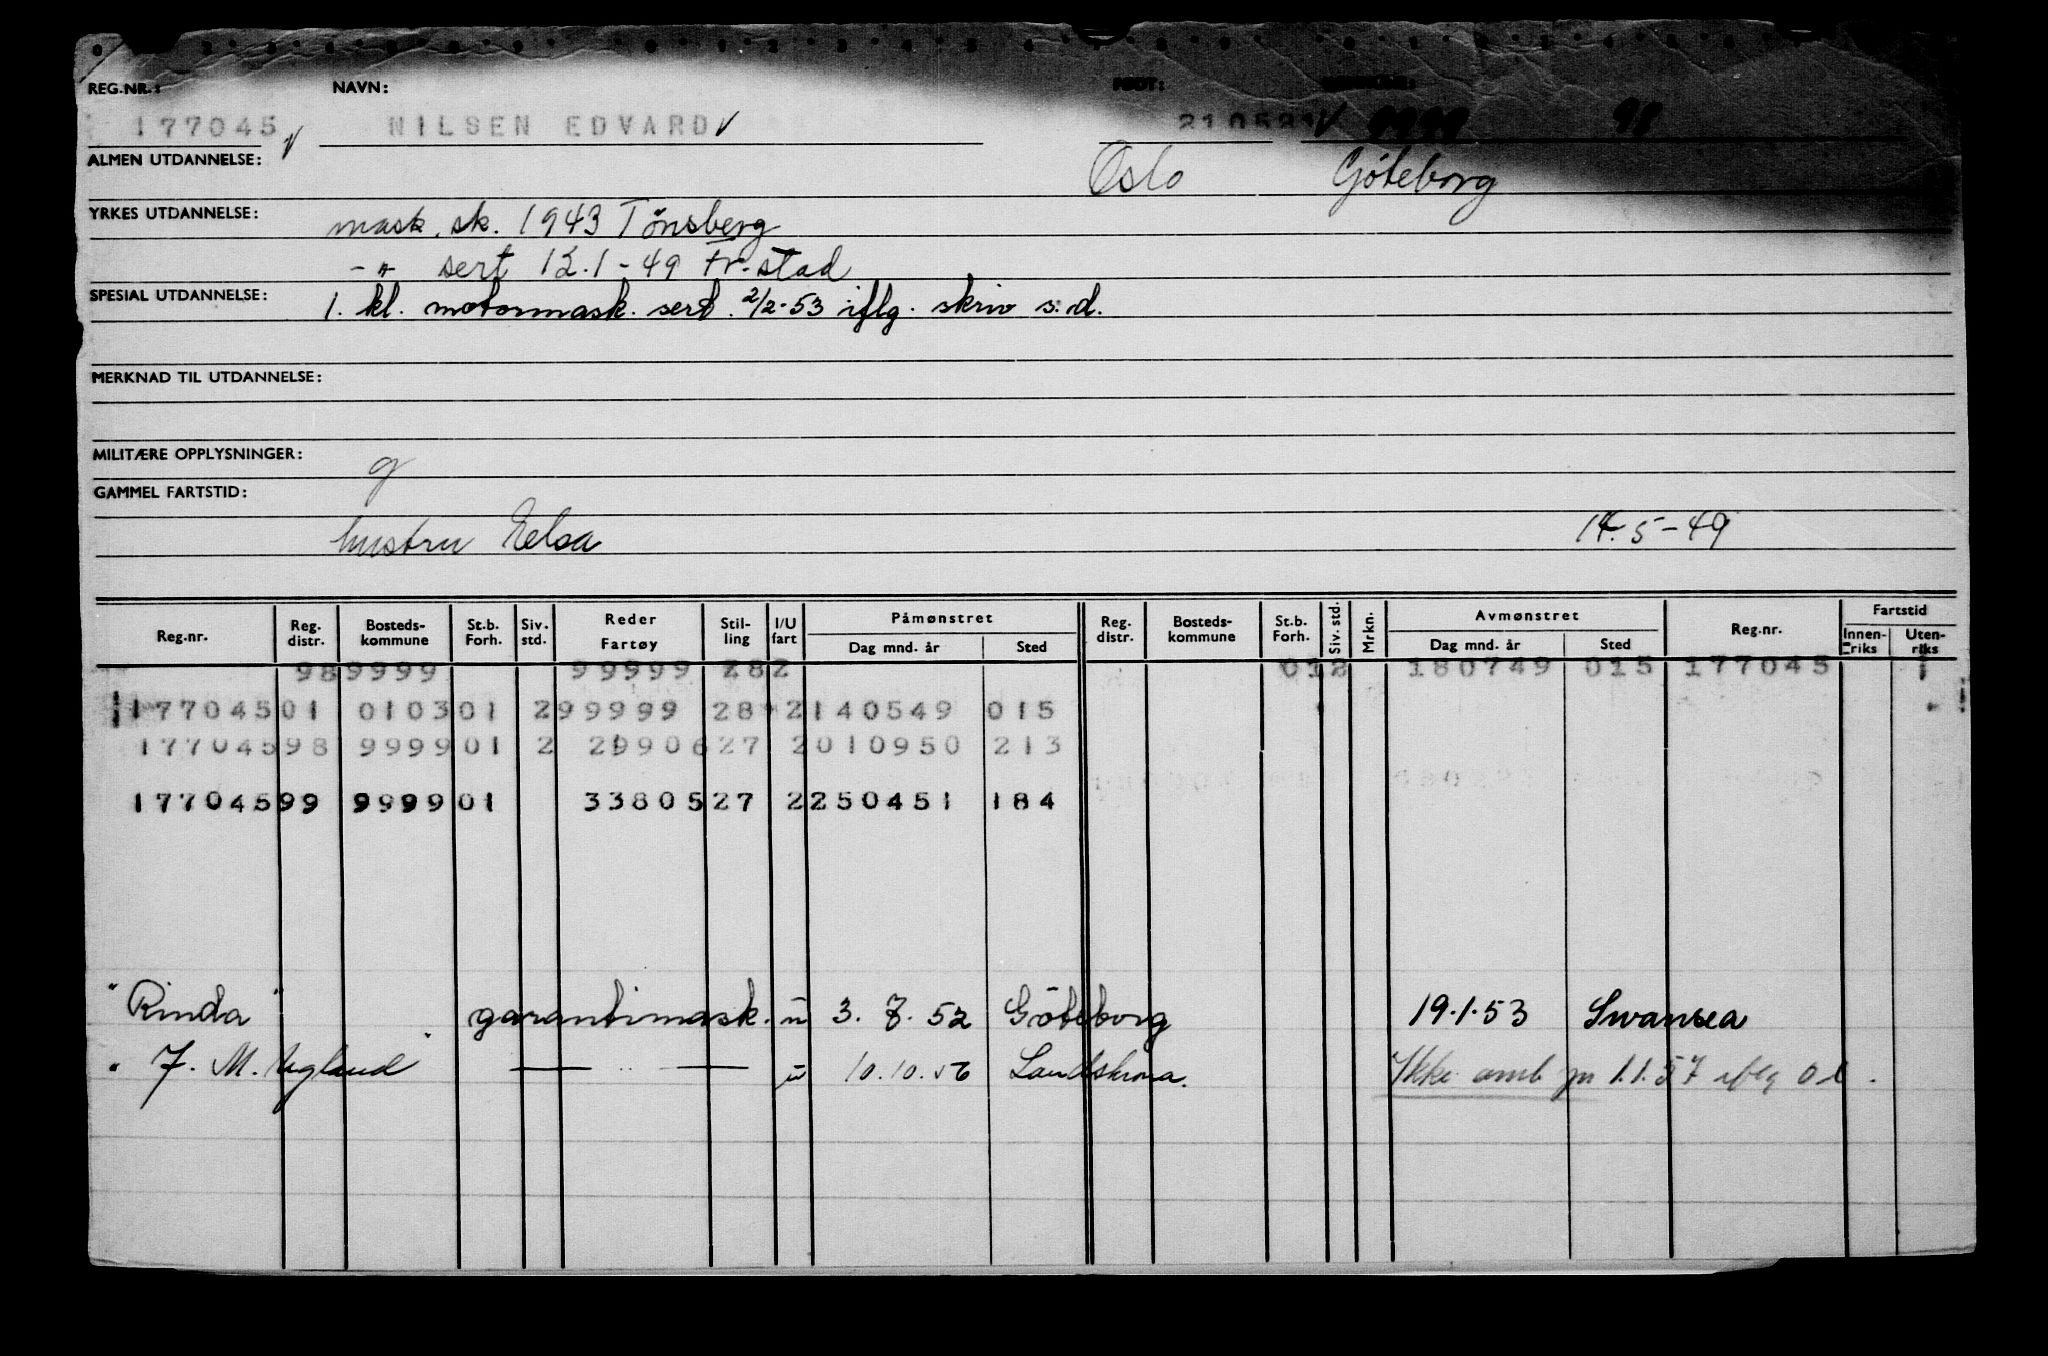 REG.NR.: NAVN: FØDT:
177045 NILSEN EDVARD 9999 98
ALMEN UTDANNELSE: Oslo Göteborg
YRKES UTDANNELSE: mask. sk. 1943 Tönsberg
-"- sert 12.1-49 Fr.stad
SPESIAL UTDANNELSE: 1. kl. motormask. sert. 2/2-53 iflg. skriv s.d.
MERKNAD TIL UTDANNELSE:
MILITÆRE OPPLYSNINGER: g
GAMMEL FARTSTID:
hustru Elsa 14.5-49
Reg.nr. Reg. distr. Bosteds-kommune St.b. Forh. Siv. std. Reder Fartøy Stil-ling I/U fart Påmønstret Dag mnd. år Sted Reg. distr. Bosteds-kommune St.b. Forh. Siv. std. Mrkn. Avmønstret Dag mnd. år Sted Reg.nr. Fartstid Innen-riks Uten-riks
98 9999 99999 282 012 180749 015 177045 1
177045 01 0103 01 2 99999 28 2 140549 015
177045 98 9999 01 2 29906 27 2 010950 213
177045 99 9999 01 33805 27 2 250451 184
"Rinda" garantimask. u 3. 7. 52 Göteborg 19.1.53 Swansea
"J. M. Ugland" — " — u 10.10.56 Landskrona. Ikke omb pr 1.1.57 iflg